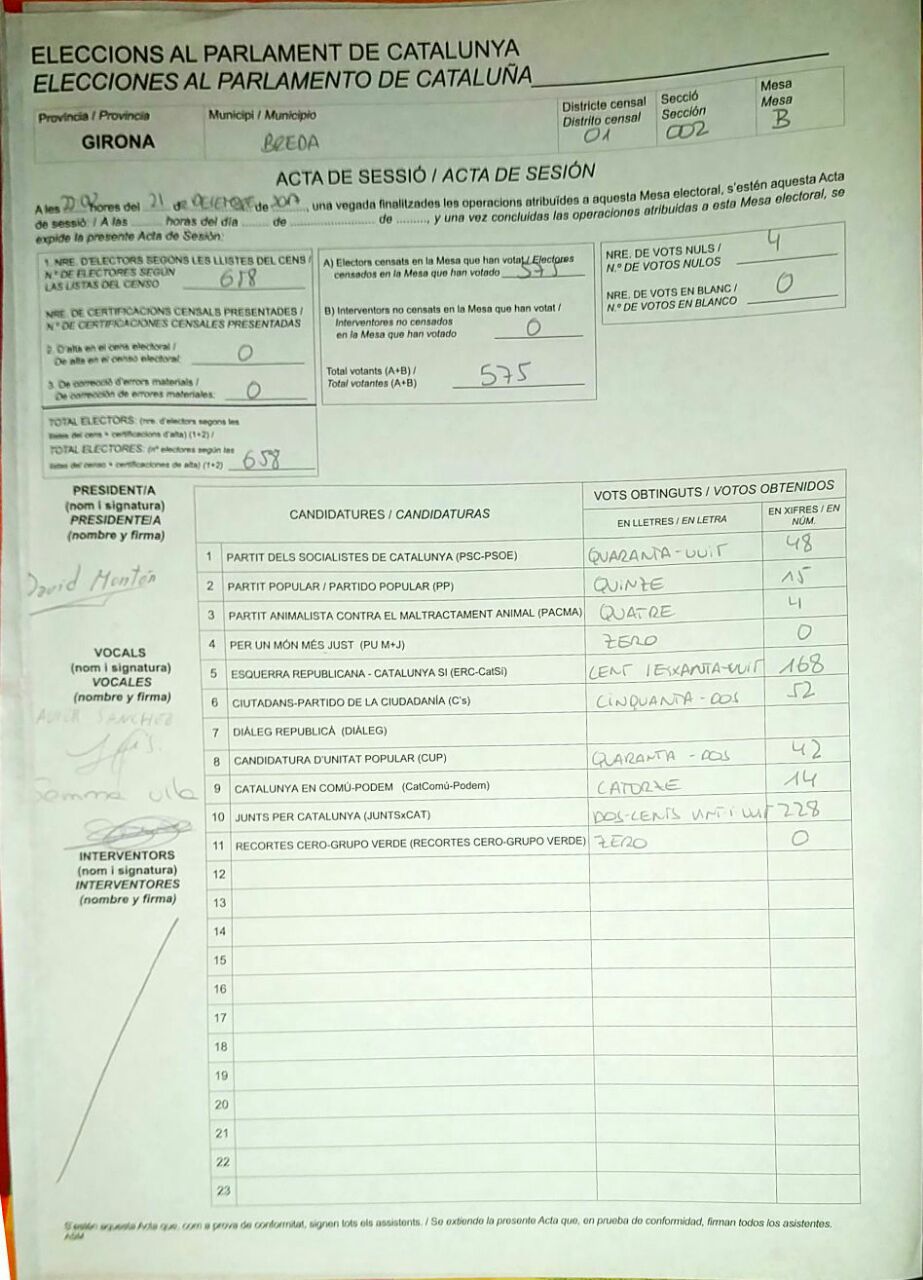 ELECCIONS AL PARLAMENT DE CATALUNYA
ELECCIONES AL PARLAMENTO DE CATALUÑA
Província / Provincia
GIRONA
Municipi / Municipio
BREDA
Districte censal
Distrito censal
01
Secció
Sección
002
Mesa
Mesa
B
ACTA DE SESSIÓ / ACTA DE SESIÓN
A les hores del 21 de DESEMBRE de 2017, una vegada finalitzades les operacions atribuïdes a aquesta Mesa electoral, s'estén aquesta Acta
de sessió: / A las ........ horas del día ........ de ........................ de ........, y una vez concluidas las operaciones atribuidas a esta Mesa electoral, se
expide la presente Acta de Sesión:
1. NRE. D'ELECTORS SEGONS LES LLISTES DEL CENS /
N.º DE ELECTORES SEGÚN
LAS LISTAS DEL CENSO 658
NRE. DE CERTIFICACIONS CENSALS PRESENTADES /
N.º DE CERTIFICACIONES CENSALES PRESENTADAS
2. D'alta en el cens electoral /
De alta en el censo electoral: 0
3. De correcció d'errors materials /
De corrección de errores materiales: 0
TOTAL ELECTORS: (nre. d'electors segons les
llistes del cens + certificacions d'alta) (1+2) /
TOTAL ELECTORES: (nº electores según las
listas del censo + certificaciones de alta) (1+2) 658
A) Electors censats en la Mesa que han votat / Electores
censados en la Mesa que han votado 575
B) Interventors no censats en la Mesa que han votat /
Interventores no censados
en la Mesa que han votado 0
Total votants (A+B) /
Total votantes (A+B) 575
NRE. DE VOTS NULS /
N.º DE VOTOS NULOS 4
NRE. DE VOTS EN BLANC /
N.º DE VOTOS EN BLANCO 0
PRESIDENT/A
(nom i signatura)
PRESIDENTE/A
(nombre y firma)
David Montón
VOCALS
(nom i signatura)
VOCALES
(nombre y firma)
SANCHEZ
Gemma Vila
INTERVENTORS
(nom i signatura)
INTERVENTORES
(nombre y firma)
CANDIDATURES / CANDIDATURAS
VOTS OBTINGUTS / VOTOS OBTENIDOS
EN LLETRES / EN LETRA
EN XIFRES / EN
NÚM.
1 PARTIT DELS SOCIALISTES DE CATALUNYA (PSC-PSOE) QUARANTA-VUIT 48
2 PARTIT POPULAR / PARTIDO POPULAR (PP) QUINZE 15
3 PARTIT ANIMALISTA CONTRA EL MALTRACTAMENT ANIMAL (PACMA) QUATRE 4
4 PER UN MÓN MÉS JUST (PU M+J) ZERO 0
5 ESQUERRA REPUBLICANA - CATALUNYA SI (ERC-CatSí) CENT SEIXANTA-VUIT 168
6 CIUTADANS-PARTIDO DE LA CIUDADANÍA (C's) CINQUANTA-DOS 52
7 DIÀLEG REPUBLICÀ (DIÀLEG)
8 CANDIDATURA D'UNITAT POPULAR (CUP) QUARANTA-DOS 42
9 CATALUNYA EN COMÚ-PODEM (CatComú-Podem) CATORZE 14
10 JUNTS PER CATALUNYA (JUNTSxCAT) DOS-CENTS VINT-I-VUIT 228
11 RECORTES CERO-GRUPO VERDE (RECORTES CERO-GRUPO VERDE) ZERO 0
12
13
14
15
16
17
18
19
20
21
22
23
S'estén aquesta Acta que, com a prova de conformitat, signen tots els assistents. / Se extiende la presente Acta que, en prueba de conformidad, firman todos los asistentes.